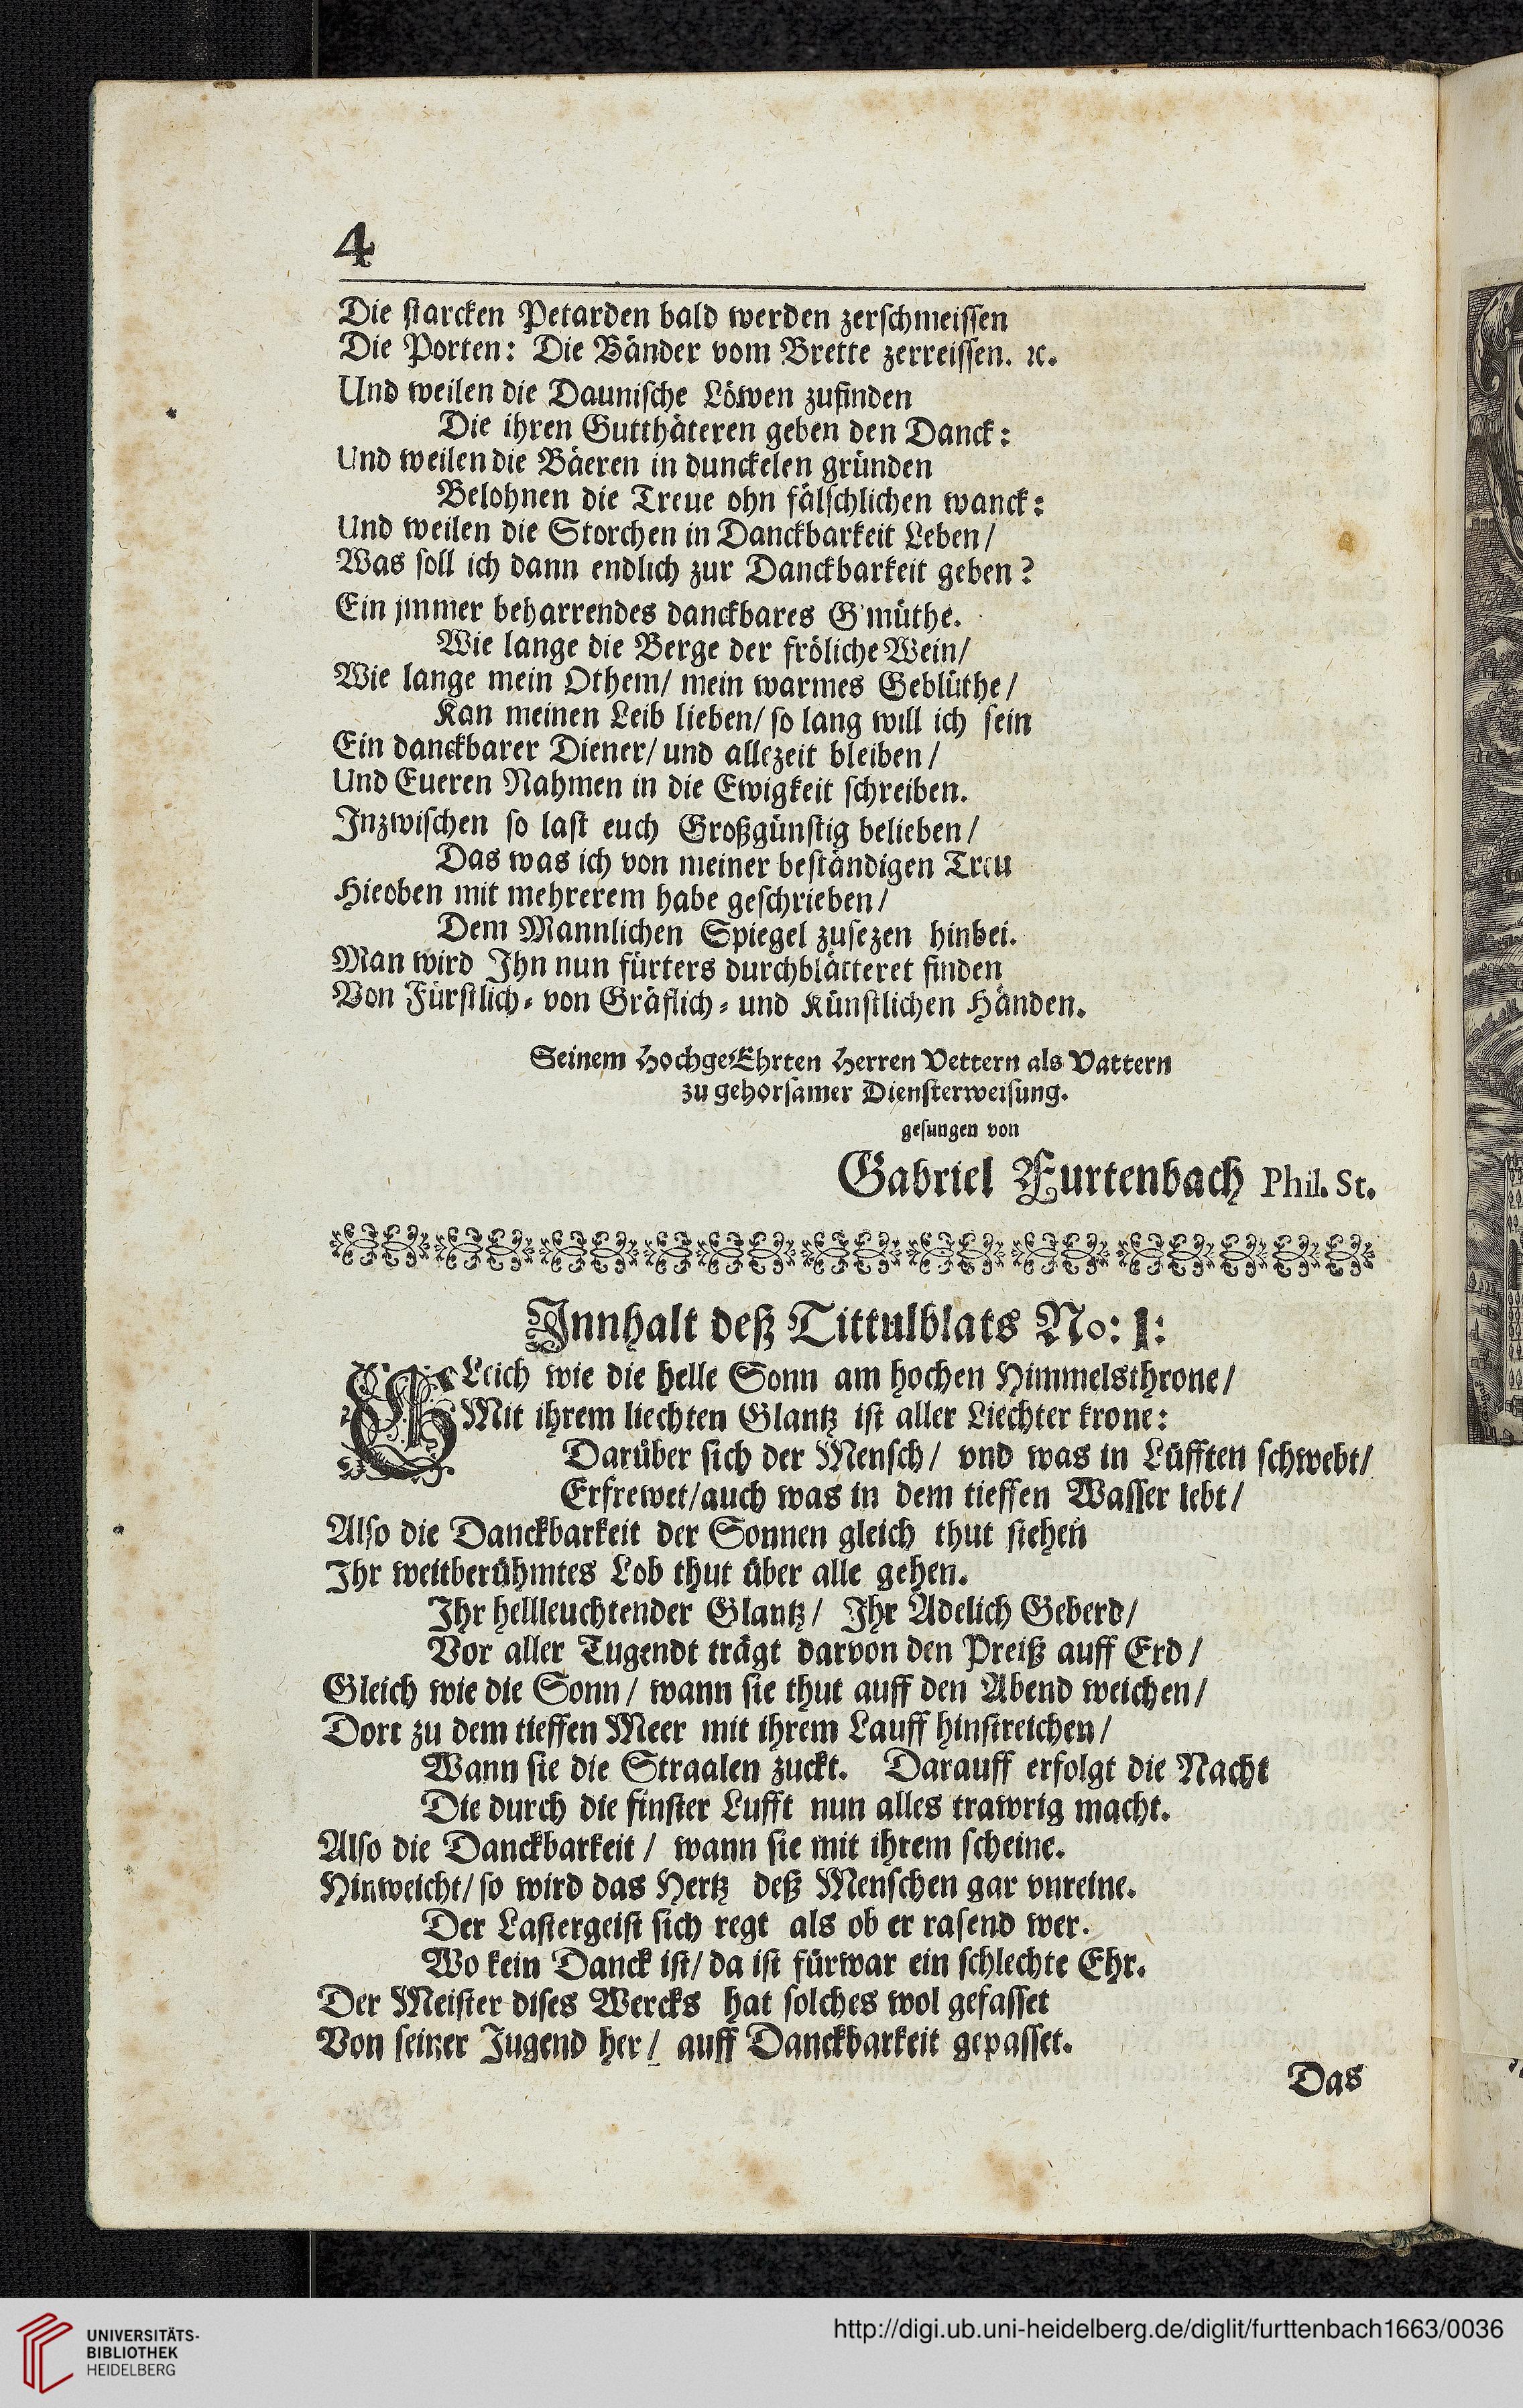 4
Die starcken Petarden bald werden zerschmeissen
Die Porten: Die Bänder vom Brette zerreissen. ꝛc.
Und weilen die Daunische Löwen zufinden
Die ihren Gutthäteren geben den Danck:
Und weilen die Bäeren in dunckelen gründen
Belohnen die Treue ohn fälschlichen wanck:
Und weilen die Storchen in Danckbarkeit Leben/
Was soll ich dann endlich zur Danckbarkeit geben?
Ein jmmer beharrendes danckbares G'müthe.
Wie lange die Berge der fröliche Wein/
Wie lange mein Othem/ mein warmes Geblüthe/
Kan meinen Leib lieben/ so lang will ich sein
Ein danckbarer Diener/ und allezeit bleiben/
Und Eueren Nahmen in die Ewigkeit schreiben.
Inzwischen so last euch Großgünstig belieben/
Das was ich von meiner beständigen Treu
Hieoben mit mehrerem habe geschrieben/
Dem Mannlichen Spiegel zusezen hinbei.
Man wird Ihn nun fürters durchblätteret finden
Von Fürstlich- von Gräflich- und Künstlichen Händen.
Seinem HochgeEhrten Herren Vettern als Vattern
zu gehorsamer Diensterweisung.
gesungen von
Gabriel Furtenbach Phil. St.
Innhalt deß Tittulblats No: 1:
GLeich wie die helle Sonn am hochen Himmelsthrone/
Mit ihrem liechten Glantz ist aller Liechter krone:
Darüber sich der Mensch/ vnd was in Lüfften schwebt/
Erfrewet/auch was in dem tieffen Wasser lebt/
Also die Danckbarkeit der Sonnen gleich thut stehen
Ihr weitberühmtes Lob thut über alle gehen.
Ihr hellleuchtender Glantz/ Ihr Adelich Geberd/
Vor aller Tugendt trägt darvon den Preiß auff Erd/
Gleich wie die Sonn/ wann sie thut auff den Abend weichen/
Dort zu dem tieffen Meer mit ihrem Lauff hinstreichen/
Wann sie die Straalen zuckt. Darauff erfolgt die Nacht
Die durch die finster Lufft nun alles trawrig macht.
Also die Danckbarkeit/ wann sie mit ihrem scheine.
Hinweicht/ so wird das Hertz deß Menschen gar vnreine.
Der Lastergeist sich regt als ob er rasend wer.
Wo kein Danck ist/ da ist fürwar ein schlechte Ehr.
Der Meister dises Wercks hat solches wol gefasset
Von seiner Jugend her/ auff Danckbarkeit gepasset.
Das
UNIVERSITÄTS-
BIBLIOTHEK
HEIDELBERG
http://digi.ub.uni-heidelberg.de/diglit/furttenbach1663/0036